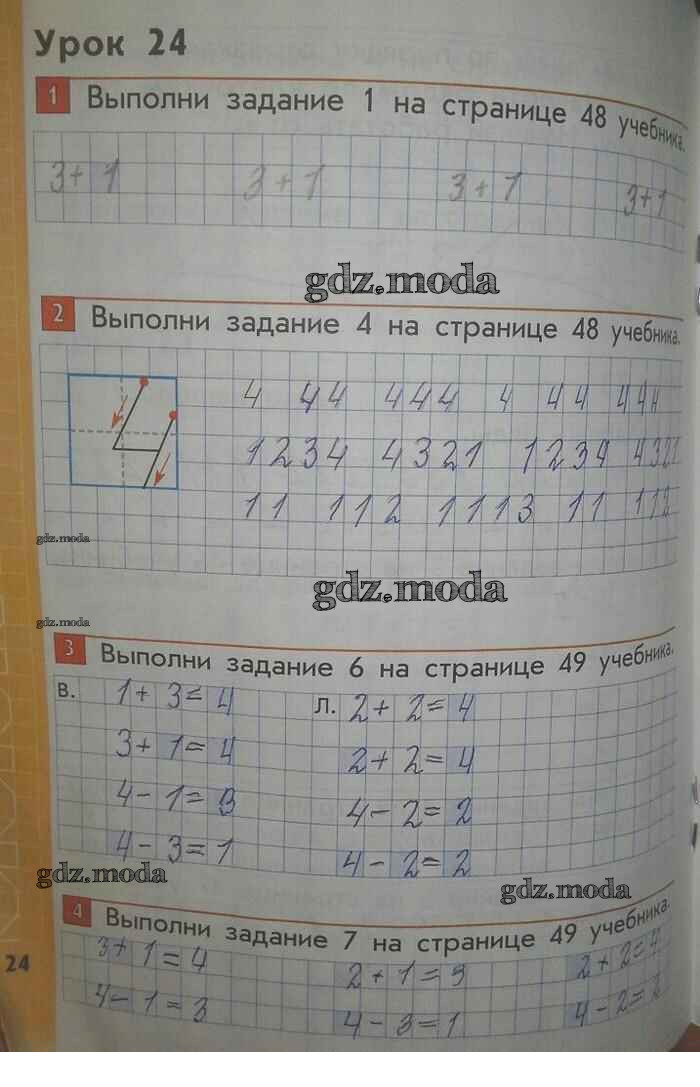 Урок 24
1 Выполни задание 1 на странице 48 учебника.
3+1 3+1 3+1 3+1
gdz.moda
2 Выполни задание 4 на странице 48 учебника.
4 44 444 4 44 444
1234 4321 1234 4321
11 112 1113 11 112
gdz.moda
gdz.moda
gdz.moda
3 Выполни задание 6 на странице 49 учебника.
В. 1+3=4 Л. 2+2=4
3+1=4 2+2=4
4-1=3 4-2=2
4-3=1 4-2=2
gdz.moda gdz.moda
4 Выполни задание 7 на странице 49 учебника.
3+1=4 2+1=3 2+2=4
4-1=3 4-3=1 4-2=2
24